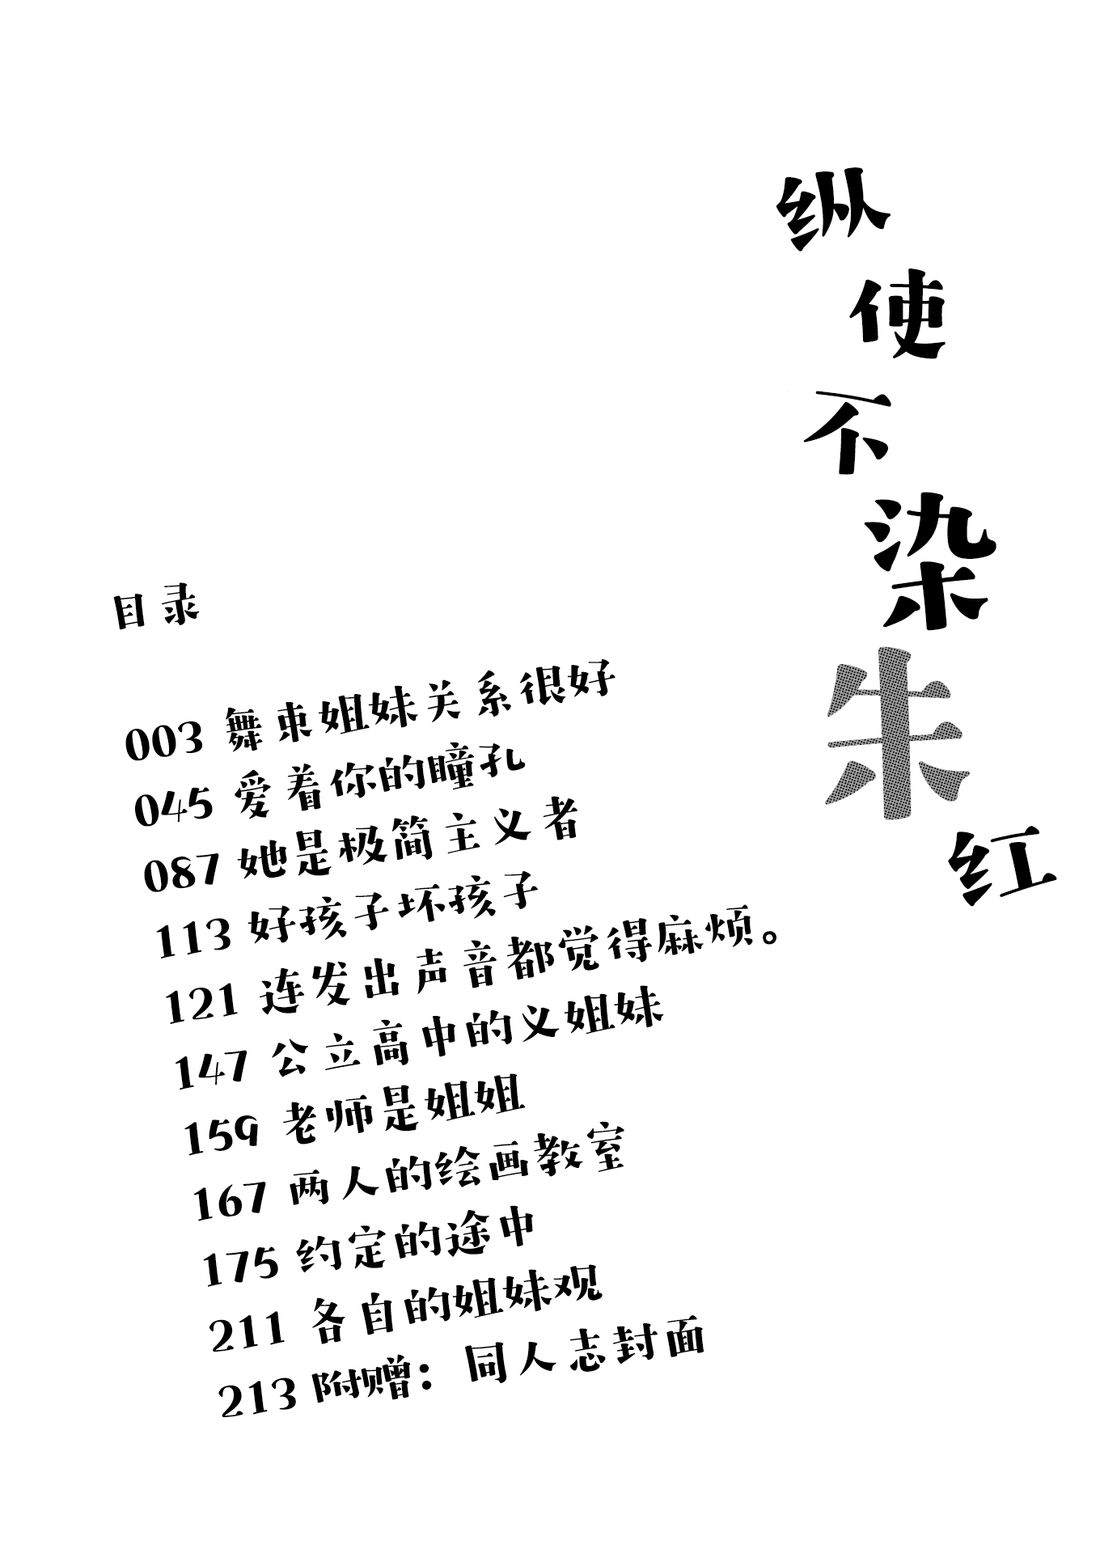 纵使不染朱红
目录
003 舞束姐妹关系很好
045 爱着你的瞳孔
087 她是极简主义者
113 好孩子坏孩子
121 连发出声音都觉得麻烦。
147 公立高中的义姐妹
159 老师是姐姐
167 两人的绘画教室
175 约定的途中
211 各自的姐妹观
213 附赠：同人志封面